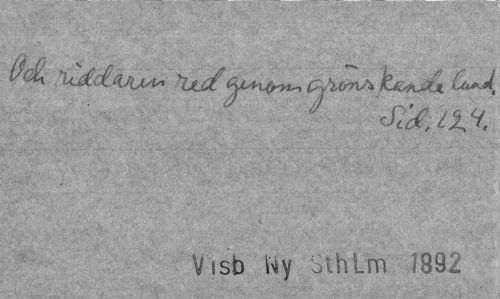 Och riddaren red genom grönskande lund.
Sid. 124.
Visb Ny SthLm 1892